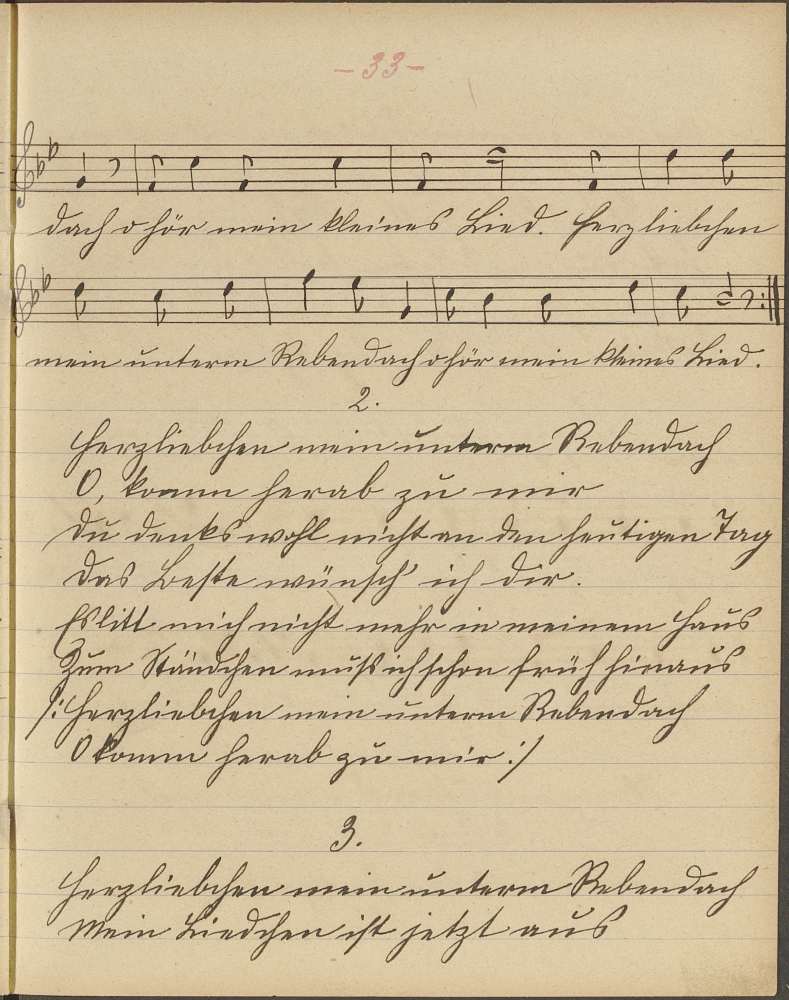 - 33 -
dach o hör mein kleines Lied. Herzliebchen
mein unterm Rebendach o hör mein kleines Lied.
2.
Herzliebchen mein unterm Rebendach
O, komm herab zu mir
Du denks wohl nicht an den heutigen Tag
Das Beste wünsch' ich dir.
Es litt mich nicht mehr in meinem Haus
Zum Ständchen muß ich schon früh hinaus
/: Herzliebchen mein unterm Rebendach
O komm herab zu mir :/
3.
Herzliebchen mein unterm Rebendach
Mein Liedchen ist jetzt aus